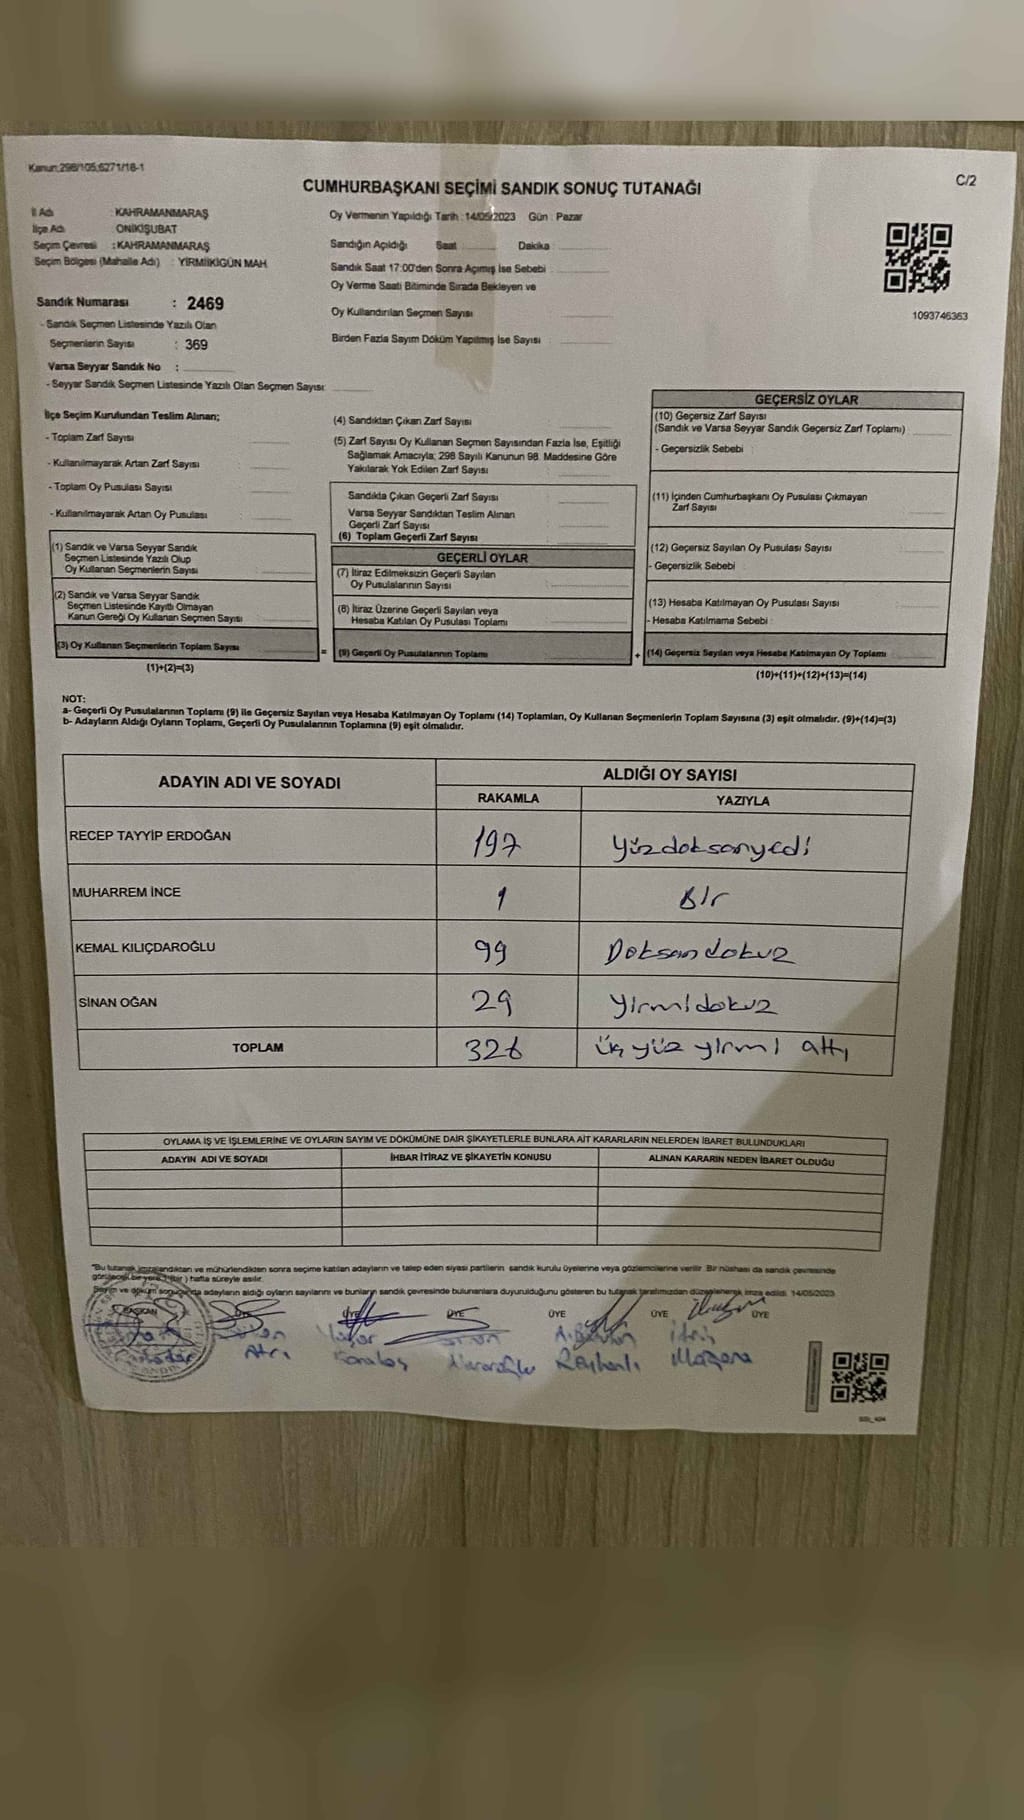 Kanun:298/105;6271/18-1
C/2
CUMHURBAŞKANI SEÇİMİ SANDIK SONUÇ TUTANAĞI
İl Adı : KAHRAMANMARAŞ
İlçe Adı ONİKİŞUBAT
Seçim Çevresi : KAHRAMANMARAŞ
Seçim Bölgesi (Mahalle Adı) : YİRMİİKİGÜN MAH.
Sandık Numarası : 2469
- Sandık Seçmen Listesinde Yazılı Olan
Seçmenlerin Sayısı : 369
Varsa Seyyar Sandık No :
- Seyyar Sandık Seçmen Listesinde Yazılı Olan Seçmen Sayısı:
Oy Vermenin Yapıldığı Tarih : 14/05/2023 Gün : Pazar
Sandığın Açıldığı Saat Dakika
Sandık Saat 17:00'den Sonra Açımış İse Sebebi :
Oy Verme Saati Bitiminde Sırada Bekleyen ve
Oy Kullandırılan Seçmen Sayısı
Birden Fazla Sayım Döküm Yapılmış İse Sayısı :
1093746363
İlçe Seçim Kurulundan Teslim Alınan;
- Toplam Zarf Sayısı
- Kullanılmayarak Artan Zarf Sayısı
- Toplam Oy Pusulası Sayısı
- Kullanılmayarak Artan Oy Pusulası
(1) Sandık ve Varsa Seyyar Sandık
Seçmen Listesinde Yazılı Olup
Oy Kullanan Seçmenlerin Sayısı
(2) Sandık ve Varsa Seyyar Sandık
Seçmen Listesinde Kayıtlı Olmayan
Kanun Gereği Oy Kullanan Seçmen Sayısı
(3) Oy Kullanan Seçmenlerin Toplam Sayısı
(1)+(2)=(3)
(4) Sandıktan Çıkan Zarf Sayısı
(5) Zarf Sayısı Oy Kullanan Seçmen Sayısından Fazla İse, Eşitliği
Sağlamak Amacıyla; 298 Sayılı Kanunun 98. Maddesine Göre
Yakılarak Yok Edilen Zarf Sayısı
Sandıkta Çıkan Geçerli Zarf Sayısı
Varsa Seyyar Sandıktan Teslim Alınan
Geçerli Zarf Sayısı
(6) Toplam Geçerli Zarf Sayısı
GEÇERLİ OYLAR
(7) İtiraz Edilmeksizin Geçerli Sayılan
Oy Pusulalarının Sayısı
(8) İtiraz Üzerine Geçerli Sayılan veya
Hesaba Katılan Oy Pusulası Toplamı
= (9) Geçerli Oy Pusulalarının Toplamı
GEÇERSİZ OYLAR
(10) Geçersiz Zarf Sayısı
(Sandık ve Varsa Seyyar Sandık Geçersiz Zarf Toplamı)
- Geçersizlik Sebebi
(11) İçinden Cumhurbaşkanı Oy Pusulası Çıkmayan
Zarf Sayısı
(12) Geçersiz Sayılan Oy Pusulası Sayısı
- Geçersizlik Sebebi
(13) Hesaba Katılmayan Oy Pusulası Sayısı
- Hesaba Katılmama Sebebi :
+ (14) Geçersiz Sayılan veya Hesaba Katılmayan Oy Toplamı
(10)+(11)+(12)+(13)=(14)
NOT:
a- Geçerli Oy Pusulalarının Toplamı (9) ile Geçersiz Sayılan veya Hesaba Katılmayan Oy Toplamı (14) Toplamları, Oy Kullanan Seçmenlerin Toplam Sayısına (3) eşit olmalıdır. (9)+(14)=(3)
b- Adayların Aldığı Oyların Toplamı, Geçerli Oy Pusulalarının Toplamına (9) eşit olmalıdır.
ADAYIN ADI VE SOYADI ALDIĞI OY SAYISI
RAKAMLA YAZIYLA
RECEP TAYYİP ERDOĞAN 197 Yüzdoksanyedi
MUHARREM İNCE 1 Bir
KEMAL KILIÇDAROĞLU 99 Doksandokuz
SİNAN OĞAN 29 Yirmidokuz
TOPLAM 326 üçyüz yirmi altı
OYLAMA İŞ VE İŞLEMLERİNE VE OYLARIN SAYIM VE DÖKÜMÜNE DAİR ŞİKAYETLERLE BUNLARA AİT KARARLARIN NELERDEN İBARET BULUNDUKLARI
ADAYIN ADI VE SOYADI İHBAR İTİRAZ VE ŞİKAYETİN KONUSU ALINAN KARARIN NEDEN İBARET OLDUĞU
"Bu tutanak imzalandıktan ve mühürlendikten sonra seçime katılan adayların ve talep eden siyasi partilerin sandık kurulu üyelerine veya gözlemcilerine verilir. Bir nüshası da sandık çevresinde
görülecek bir yere 1 (bir) hafta süreyle asılır.
Sayım ve döküm sonucunda adayların aldığı oyların sayılarını ve bunların sandık çevresinde bulunanlara duyurulduğunu gösteren bu tutanak tarafımızdan düzenlenerek imza edildi. 14/05/2023
BAŞKAN ÜYE ÜYE ÜYE ÜYE ÜYE ÜYE
Reyhanlı